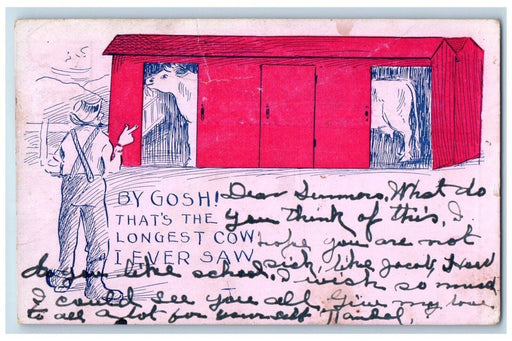 BY GOSH!
THAT'S THE
LONGEST COW
I EVER SAW
Dear Summers, What do
you think of this, I
hope you are not
sick, like Jacob, How
do you like school, I wish so much
I could see you all, Give my love
to all & lot for yourself